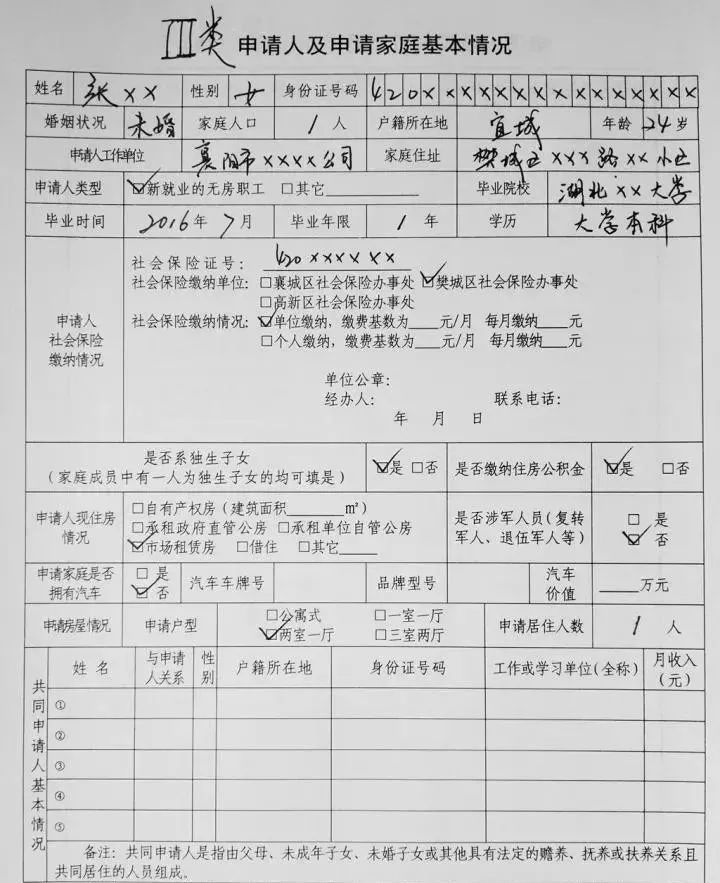 III类 申请人及申请家庭基本情况
姓名 张×× 性别 女 身份证号码 420×××××××××××××××
婚姻状况 未婚 家庭人口 1人 户籍所在地 宜城 年龄 24岁
申请人工作单位 襄阳市××××公司 家庭住址 樊城区×××路××小区
申请人类型 ☑新就业的无房职工 □其它 毕业院校 湖北××大学
毕业时间 2016年7月 毕业年限 1年 学历 大学本科
申请人社会保险缴纳情况
社会保险证号: 420××××××
社会保险缴纳单位: □襄城区社会保险办事处 ☑樊城区社会保险办事处
□高新区社会保险办事处
社会保险缴纳情况: ☑单位缴纳, 缴费基数为____元/月 每月缴纳____元
□个人缴纳, 缴费基数为____元/月 每月缴纳____元
单位公章:
经办人: 联系电话:
年 月 日
是否系独生子女
(家庭成员中有一人为独生子女的均可填是) ☑是 □否 是否缴纳住房公积金 ☑是 □否
申请人现住房情况
□自有产权房(建筑面积______㎡)
□承租政府直管公房 □承租单位自管公房
☑市场租赁房 □借住 □其它____
是否涉军人员(复转军人、退伍军人等) □是 ☑否
申请家庭是否拥有汽车 □是 ☑否 汽车车牌号 品牌型号 汽车价值 ____万元
申请房屋情况 申请户型 □公寓式 □一室一厅
☑两室一厅 □三室两厅 申请居住人数 1人
共同申请人基本情况
姓名 与申请人关系 性别 户籍所在地 身份证号码 工作或学习单位(全称) 月收入(元)
①
②
③
④
⑤
备注: 共同申请人是指由父母、未成年子女、未婚子女或其他具有法定的赡养、抚养或扶养关系且
共同居住的人员组成。